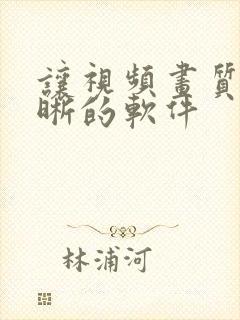 讓視頻畫質
晰的軟件
林浦河